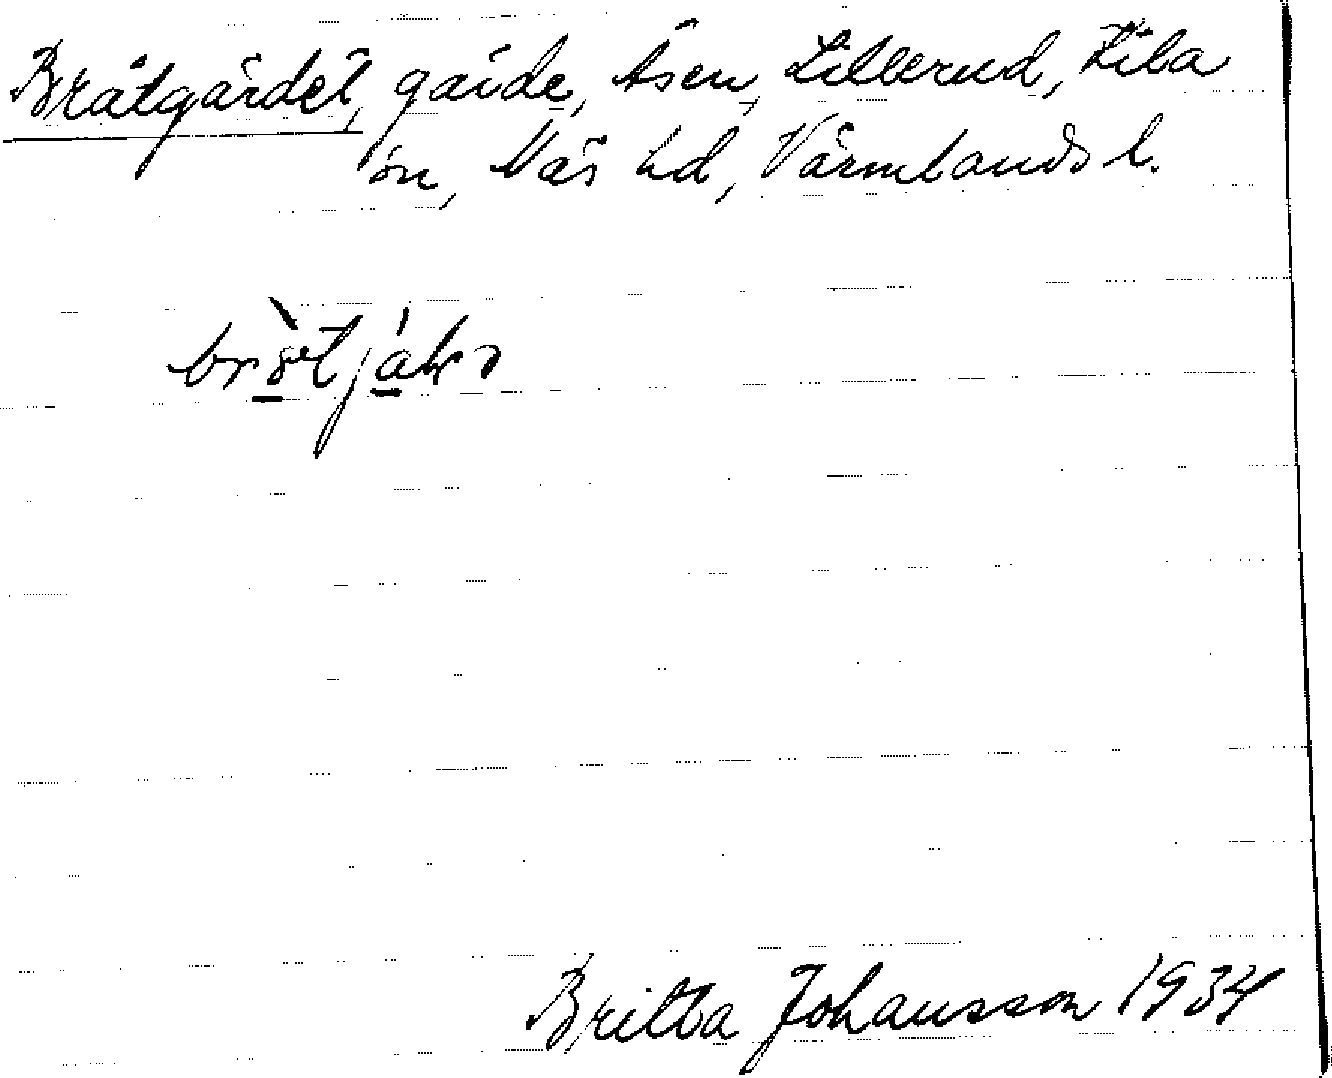 Bråtgärdet, gärde, Åsen, Lillerud, Kila
sn, Näs hd, Värmlands l.
Britta Johansson 1934